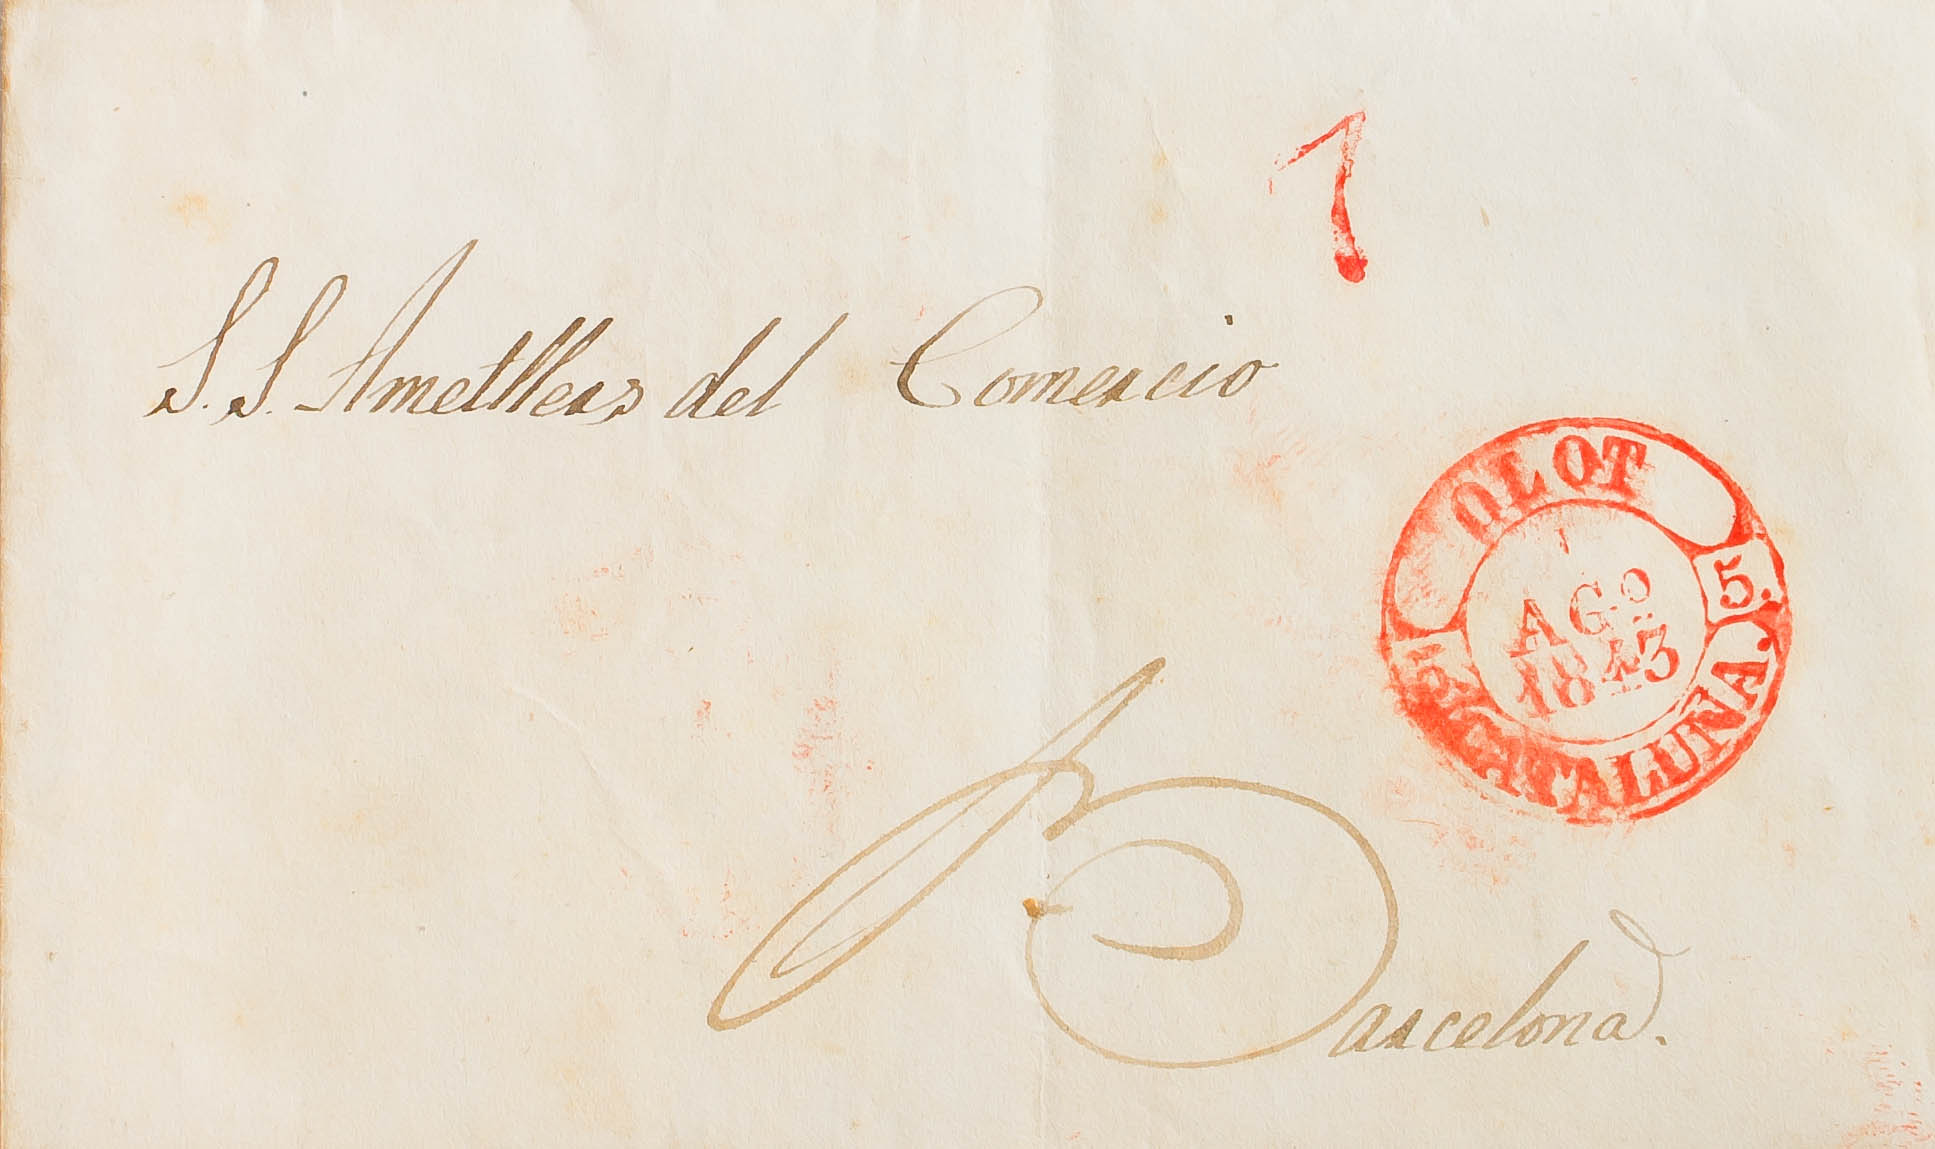 7
S. S. Ametllers del Comercio
OLOT
5.
1
AGº
1843
5.
CATALUÑA.
Barcelona.